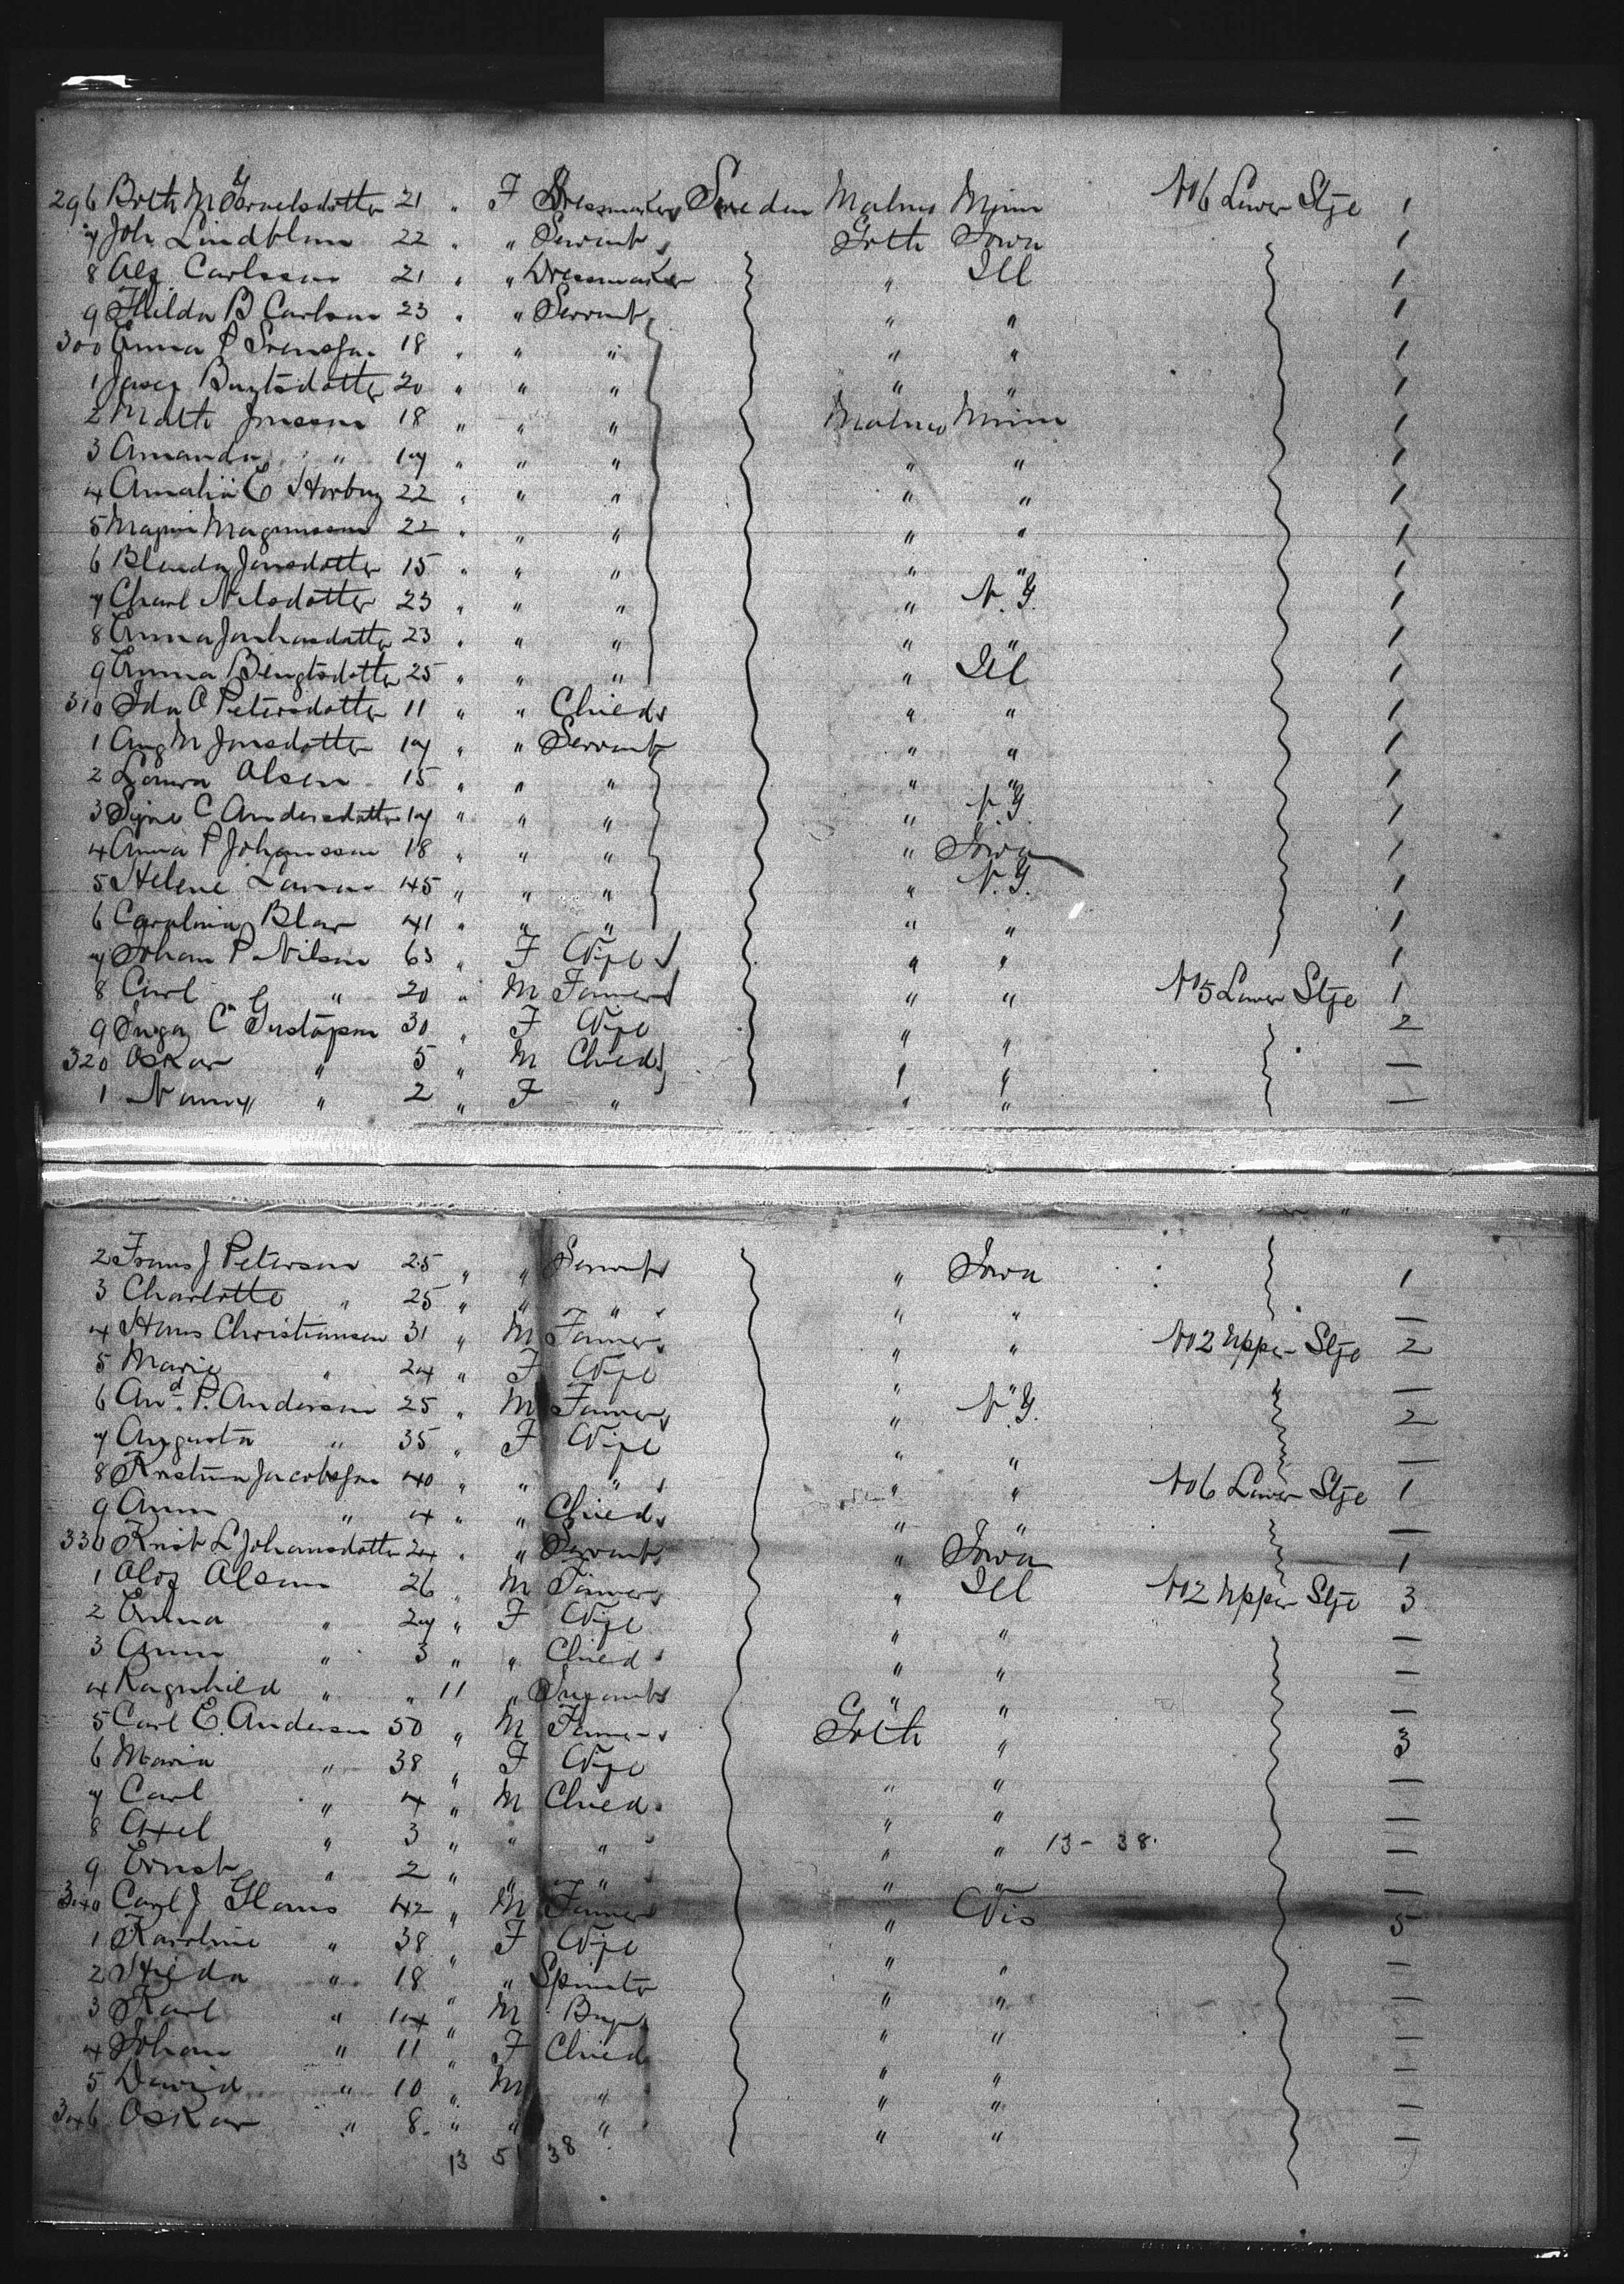 296 Beth M Israelsdotter 21 " F Dressmaker Sweden Malmo Minn No 6 Lower Stge 1
7 Joh Lindblom 22 " " Servant Goth Iowa 1
8 Alf Carlsson 21 " " Dressmaker " Ill 1
9 Hilda B Carlson 23 " " Servant " " 1
300 Anna P Svensson 18 " " " " " 1
1 Bengtsdotter 20 " " " " " 1
2 Math Jonsson 18 " " " Malmo Minn 1
3 Amanda " 17 " " " " " 1
4 Amalia C Horburg 22 " " " " " 1
5 Magnusson 22 " " " " " 1
6 Blenda Jonsdotter 15 " " " " " 1
7 Charl Nilsdotter 23 " " " " N.Y. 1
8 Emma Jonhasdotter 23 " " " " " 1
9 Emma Bengtsdotter 25 " " " " Ill 1
310 Ida C Petersdotter 11 " " Child " " 1
1 Aug M Jonsdotter 17 " " Servant " " 1
2 Laura Olsen 15 " " " " " 1
3 Signe C Andersdotter 17 " " " " N.Y. 1
4 Anna P Johansson 18 " " " " Iowa 1
5 Helene 45 " " " " N.Y. 1
6 Carolina Blar 41 " " " " " 1
7 Johan P Nilson 63 " F Wife " " 1
8 Carl " 20 " M Farmer " " No 5 Lower Stge 1
9 Inga C Gustafson 30 " F Wife " " 2
320 Oskar " 5 " M Child " " —
1 Nanny " 2 " F " " " —
2 Frans J Peterson 25 " " Servant " Iowa 1
3 Charlotte " 25 " " " " " —
4 Hans Christianson 31 " M Farmer " " No 2 Upper Stge 2
5 Marie " 24 " F Wife " " —
6 And. P. Anderson 25 " M Farmer " N.Y. " 2
7 Augusta " 35 " F Wife " " —
8 Kristina Jacobsson 40 " " " " " No 6 Lower Stge 1
9 Ann " 4 " " Child " " —
330 Krist L Johansdotter 24 " " Servant " Iowa 1
1 Olof Olson 26 " M Farmer " Ill No 2 Upper Stge 3
2 Emma " 27 " F Wife " " —
3 Ann " 3 " " Child " " —
4 Ragnhild " " 11 " Infant " " —
5 Carl E. Anderson 50 " M Farmer Goth " 3
6 Maria " 38 " F Wife " " —
7 Carl " 4 " M Child " " —
8 Axel " 3 " " " " " 13 - 38. —
9 Ernst " 2 " " " " " —
340 Carl J Glans 42 " M Farmer " Wis 5
1 Karoline " 38 " F Wife " " —
2 Hilda " 18 " " Spinster " " —
3 Karl " 14 " M Boy " " —
4 Johan " 11 " F Child " " —
5 David " 10 " M " " " —
346 Oskar " 8 " " " " " —
13 5 38